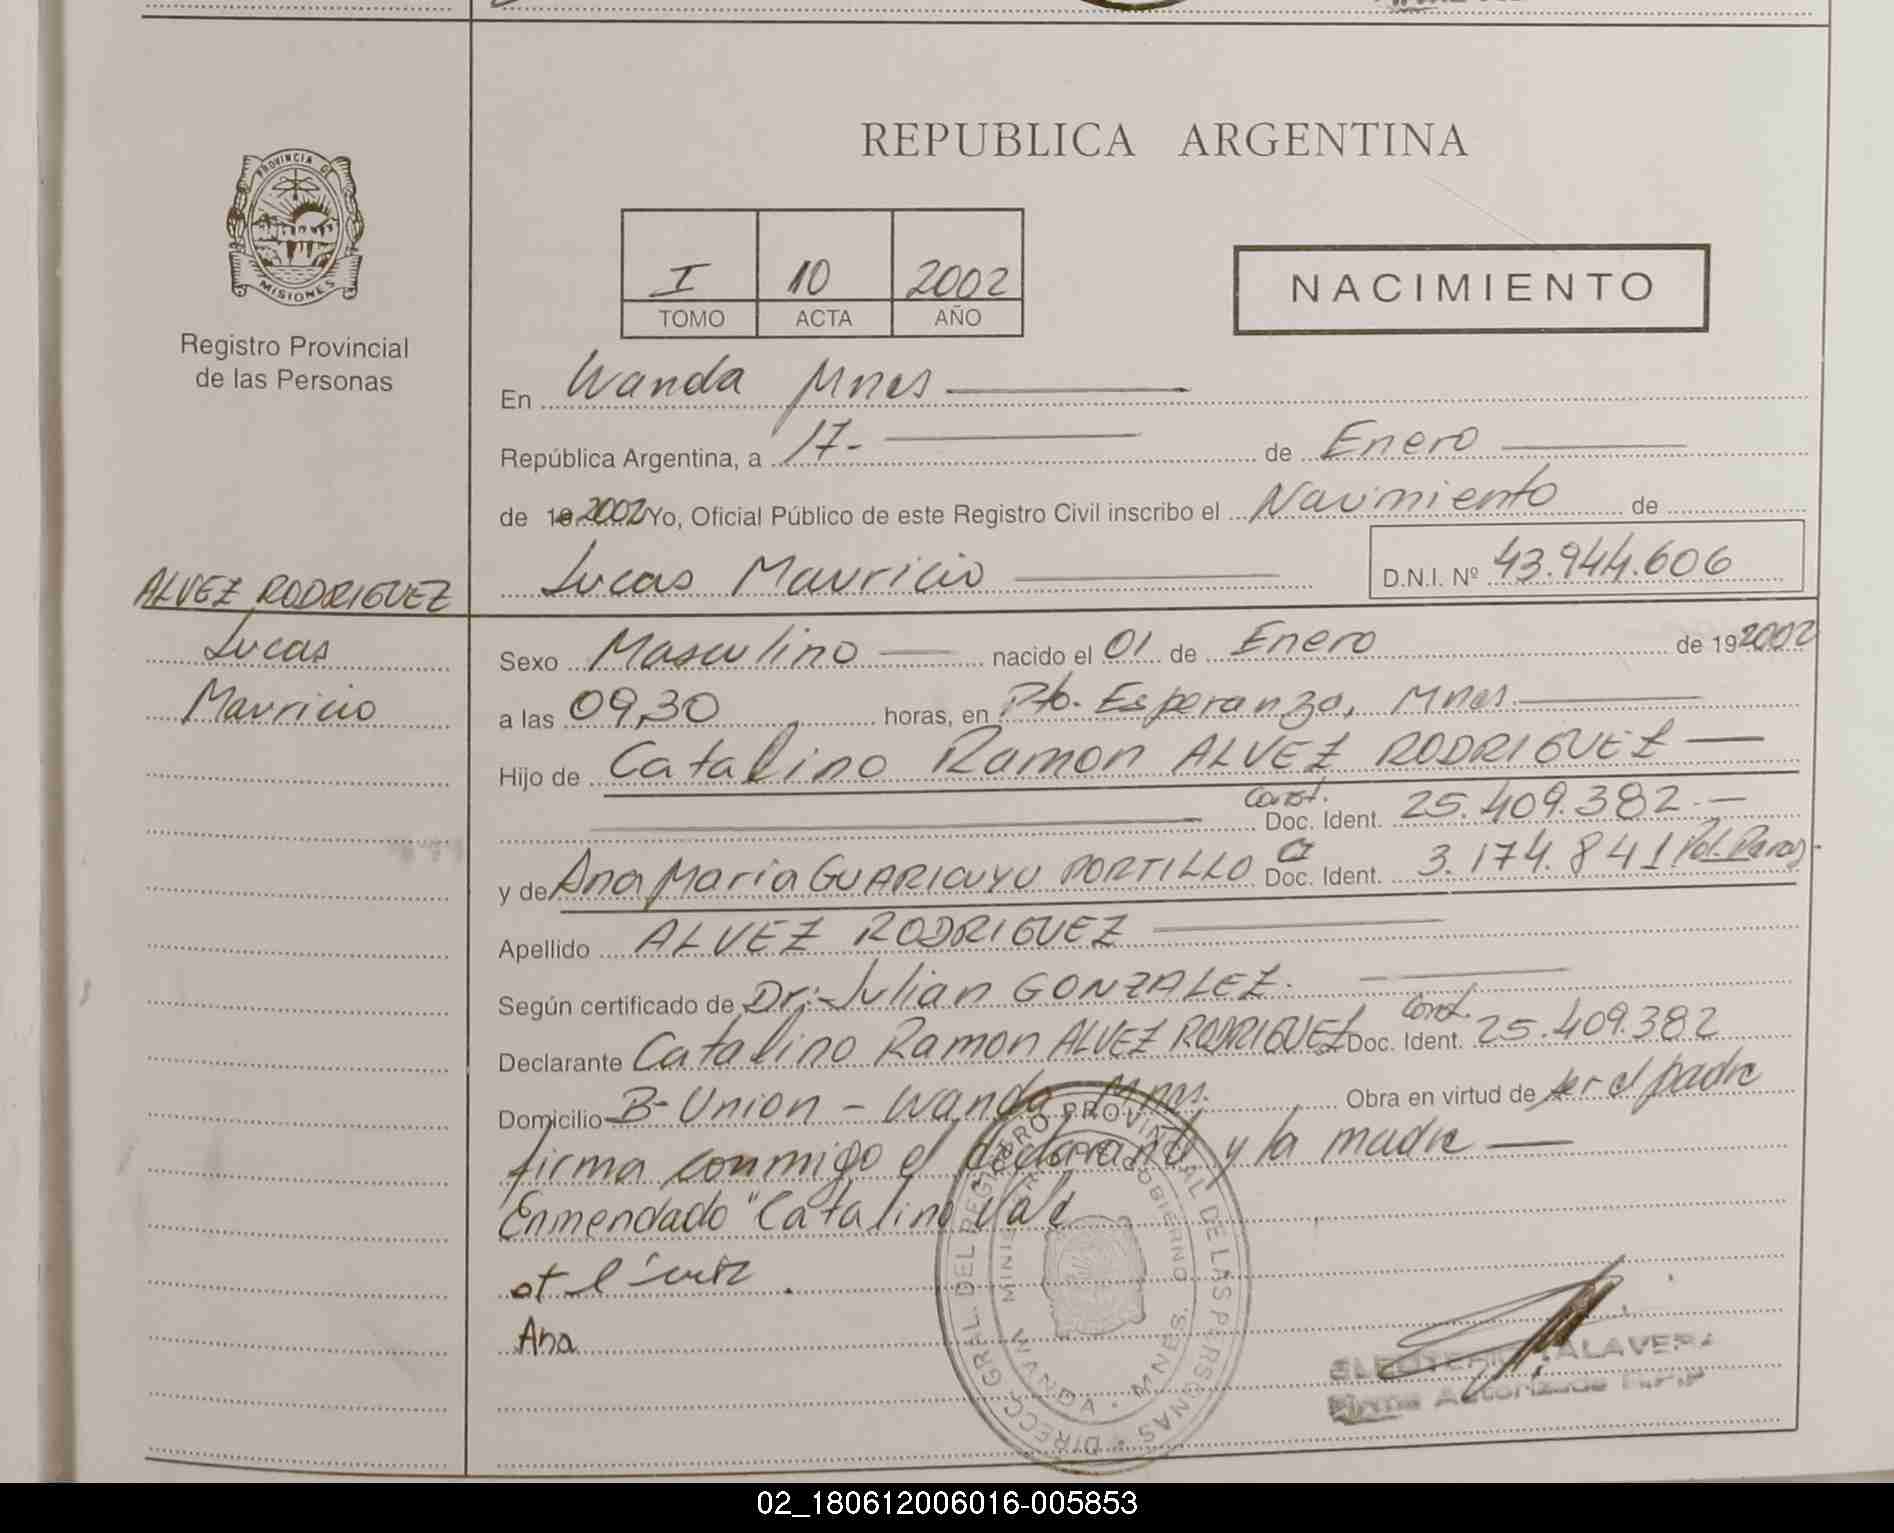 REPUBLICA ARGENTINA
PROVINCIA DE
MISIONES
Registro Provincial
de las Personas
I 10 2002
TOMO ACTA AÑO
NACIMIENTO
En Wanda Mnes
República Argentina, a 17- de Enero
de 2002 Yo, Oficial Público de este Registro Civil inscribo el Nacimiento de
Lucas Mauricio D.N.I. Nº 43.944.606
ALVEZ RODRIGUEZ
Lucas
Mauricio
Sexo Masculino nacido el 01 de Enero de 19 2002
a las 09,30 horas, en Pto. Esperanza, Mnes.
Hijo de Catalino Ramon ALVEZ RODRIGUEZ
Const.
Doc. Ident. 25.409.382.-
y de Ana Maria PORTILLO CI Doc. Ident. 3.174.841 Pol.
Apellido ALVEZ RODRIGUEZ
Según certificado de Dr. Julian GONZALEZ.
Declarante Catalino Ramon ALVEZ RODRIGUEZ Const. Doc. Ident. 25.409.382
Domicilio B- Union - Wanda Mnes. Obra en virtud de ser el padre
firma conmigo el declarante y la madre
Enmendado "Catalino Vale
Ana
DIRECC. GRAL. DEL REGISTRO PROVINCIAL DE LAS PERSONAS
WANDA - MNES.
TALAVERA
Firma Autorizada R.P.P
02_180612006016-005853